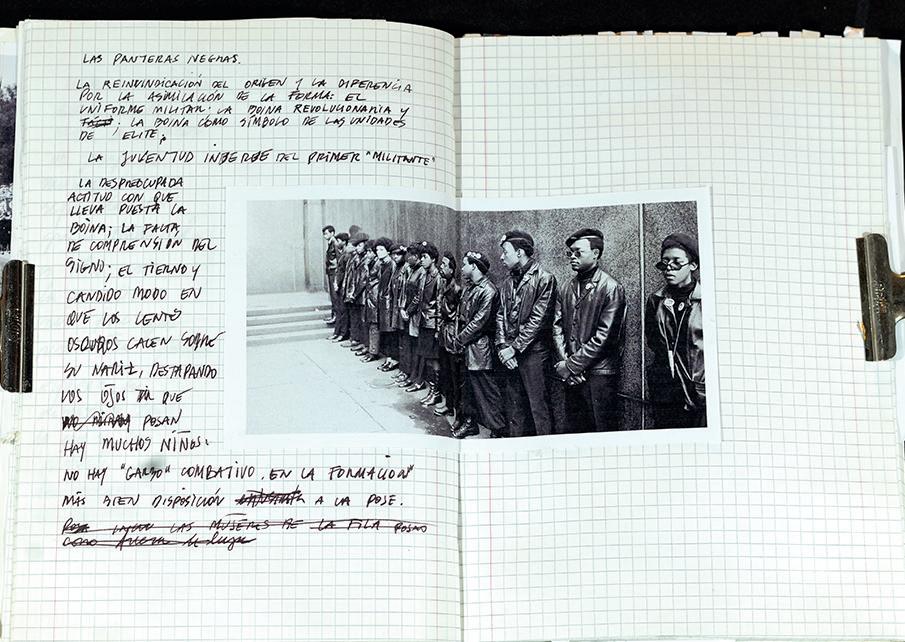 LAS PANTERAS NEGRAS.
LA REINVINDICACIÓN DEL ORIGEN Y LA DIFERENCIA
POR LA ASIMILACIÓN DE LA FORMA: EL
UNIFORME MILITAR. LA BOINA REVOLUCIONARIA Y
; LA BOINA COMO SÍMBOLO DE LAS UNIDADES
DE ELITE;
LA JUVENTUD DEL PRIMER "MILITANTE"
LA DESPREOCUPADA
ACTITUD CON QUE
LLEVA PUESTA LA
BOINA; LA FALTA
DE COMPRENSION DEL
SIGNO; EL TIERNO Y
CANDIDO MODO EN
QUE LOS LENTES
OSCUROS CAEN SOBRE
SU NARIZ, DESTAPANDO
LOS OJOS QUE
NO MIRAN POSAN
HAY MUCHOS NIÑOS.
NO HAY "GARBO" COMBATIVO. EN LA FORMACION"
MÁS BIEN DISPOSICIÓN A LA POSE.
LAS MUJERES DE LA FILA POSAN